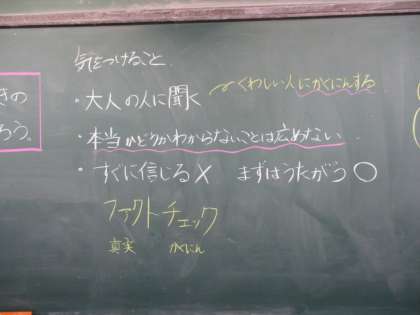 気をつけること
・大人の人に聞く
くわしい人にかくにんする
きの
・本当かどうかわからないことは広めない
ろう。
・すぐに信じる× まずはうたがう○
ファクトチェック
真実 かくにん